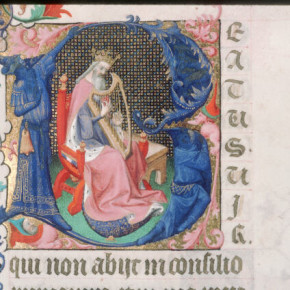 BEATUS UIR.
qui non abijt in consilio